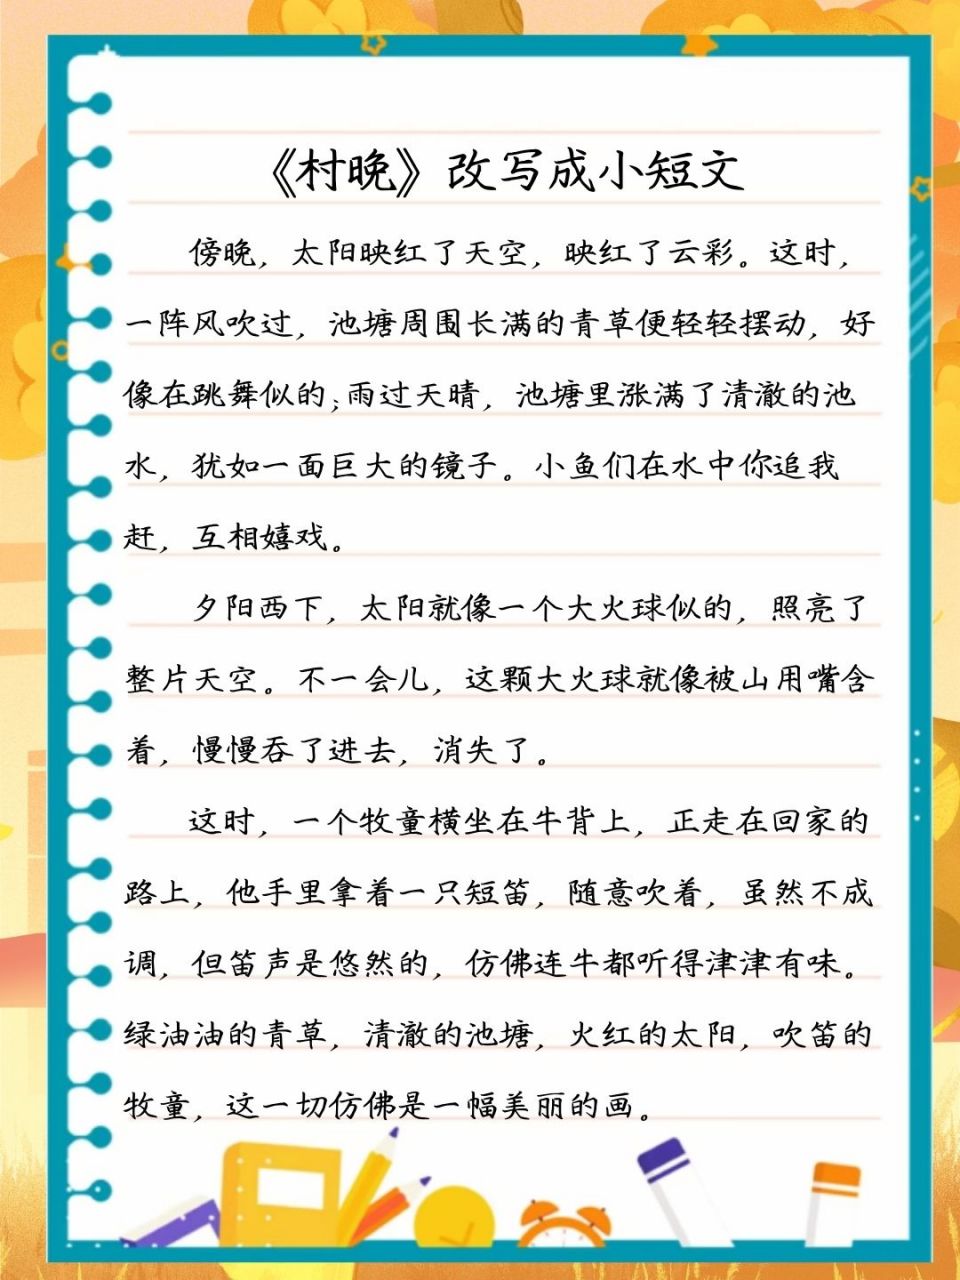 《村晚》改写成小短文
傍晚，太阳映红了天空，映红了云彩。这时，
一阵风吹过，池塘周围长满的青草便轻轻摆动，好
像在跳舞似的;雨过天晴，池塘里涨满了清澈的池
水，犹如一面巨大的镜子。小鱼们在水中你追我
赶，互相嬉戏。
夕阳西下，太阳就像一个大火球似的，照亮了
整片天空。不一会儿，这颗大火球就像被山用嘴含
着，慢慢吞了进去，消失了。
这时，一个牧童横坐在牛背上，正走在回家的
路上，他手里拿着一只短笛，随意吹着，虽然不成
调，但笛声是悠然的，仿佛连牛都听得津津有味。
绿油油的青草，清澈的池塘，火红的太阳，吹笛的
牧童，这一切仿佛是一幅美丽的画。